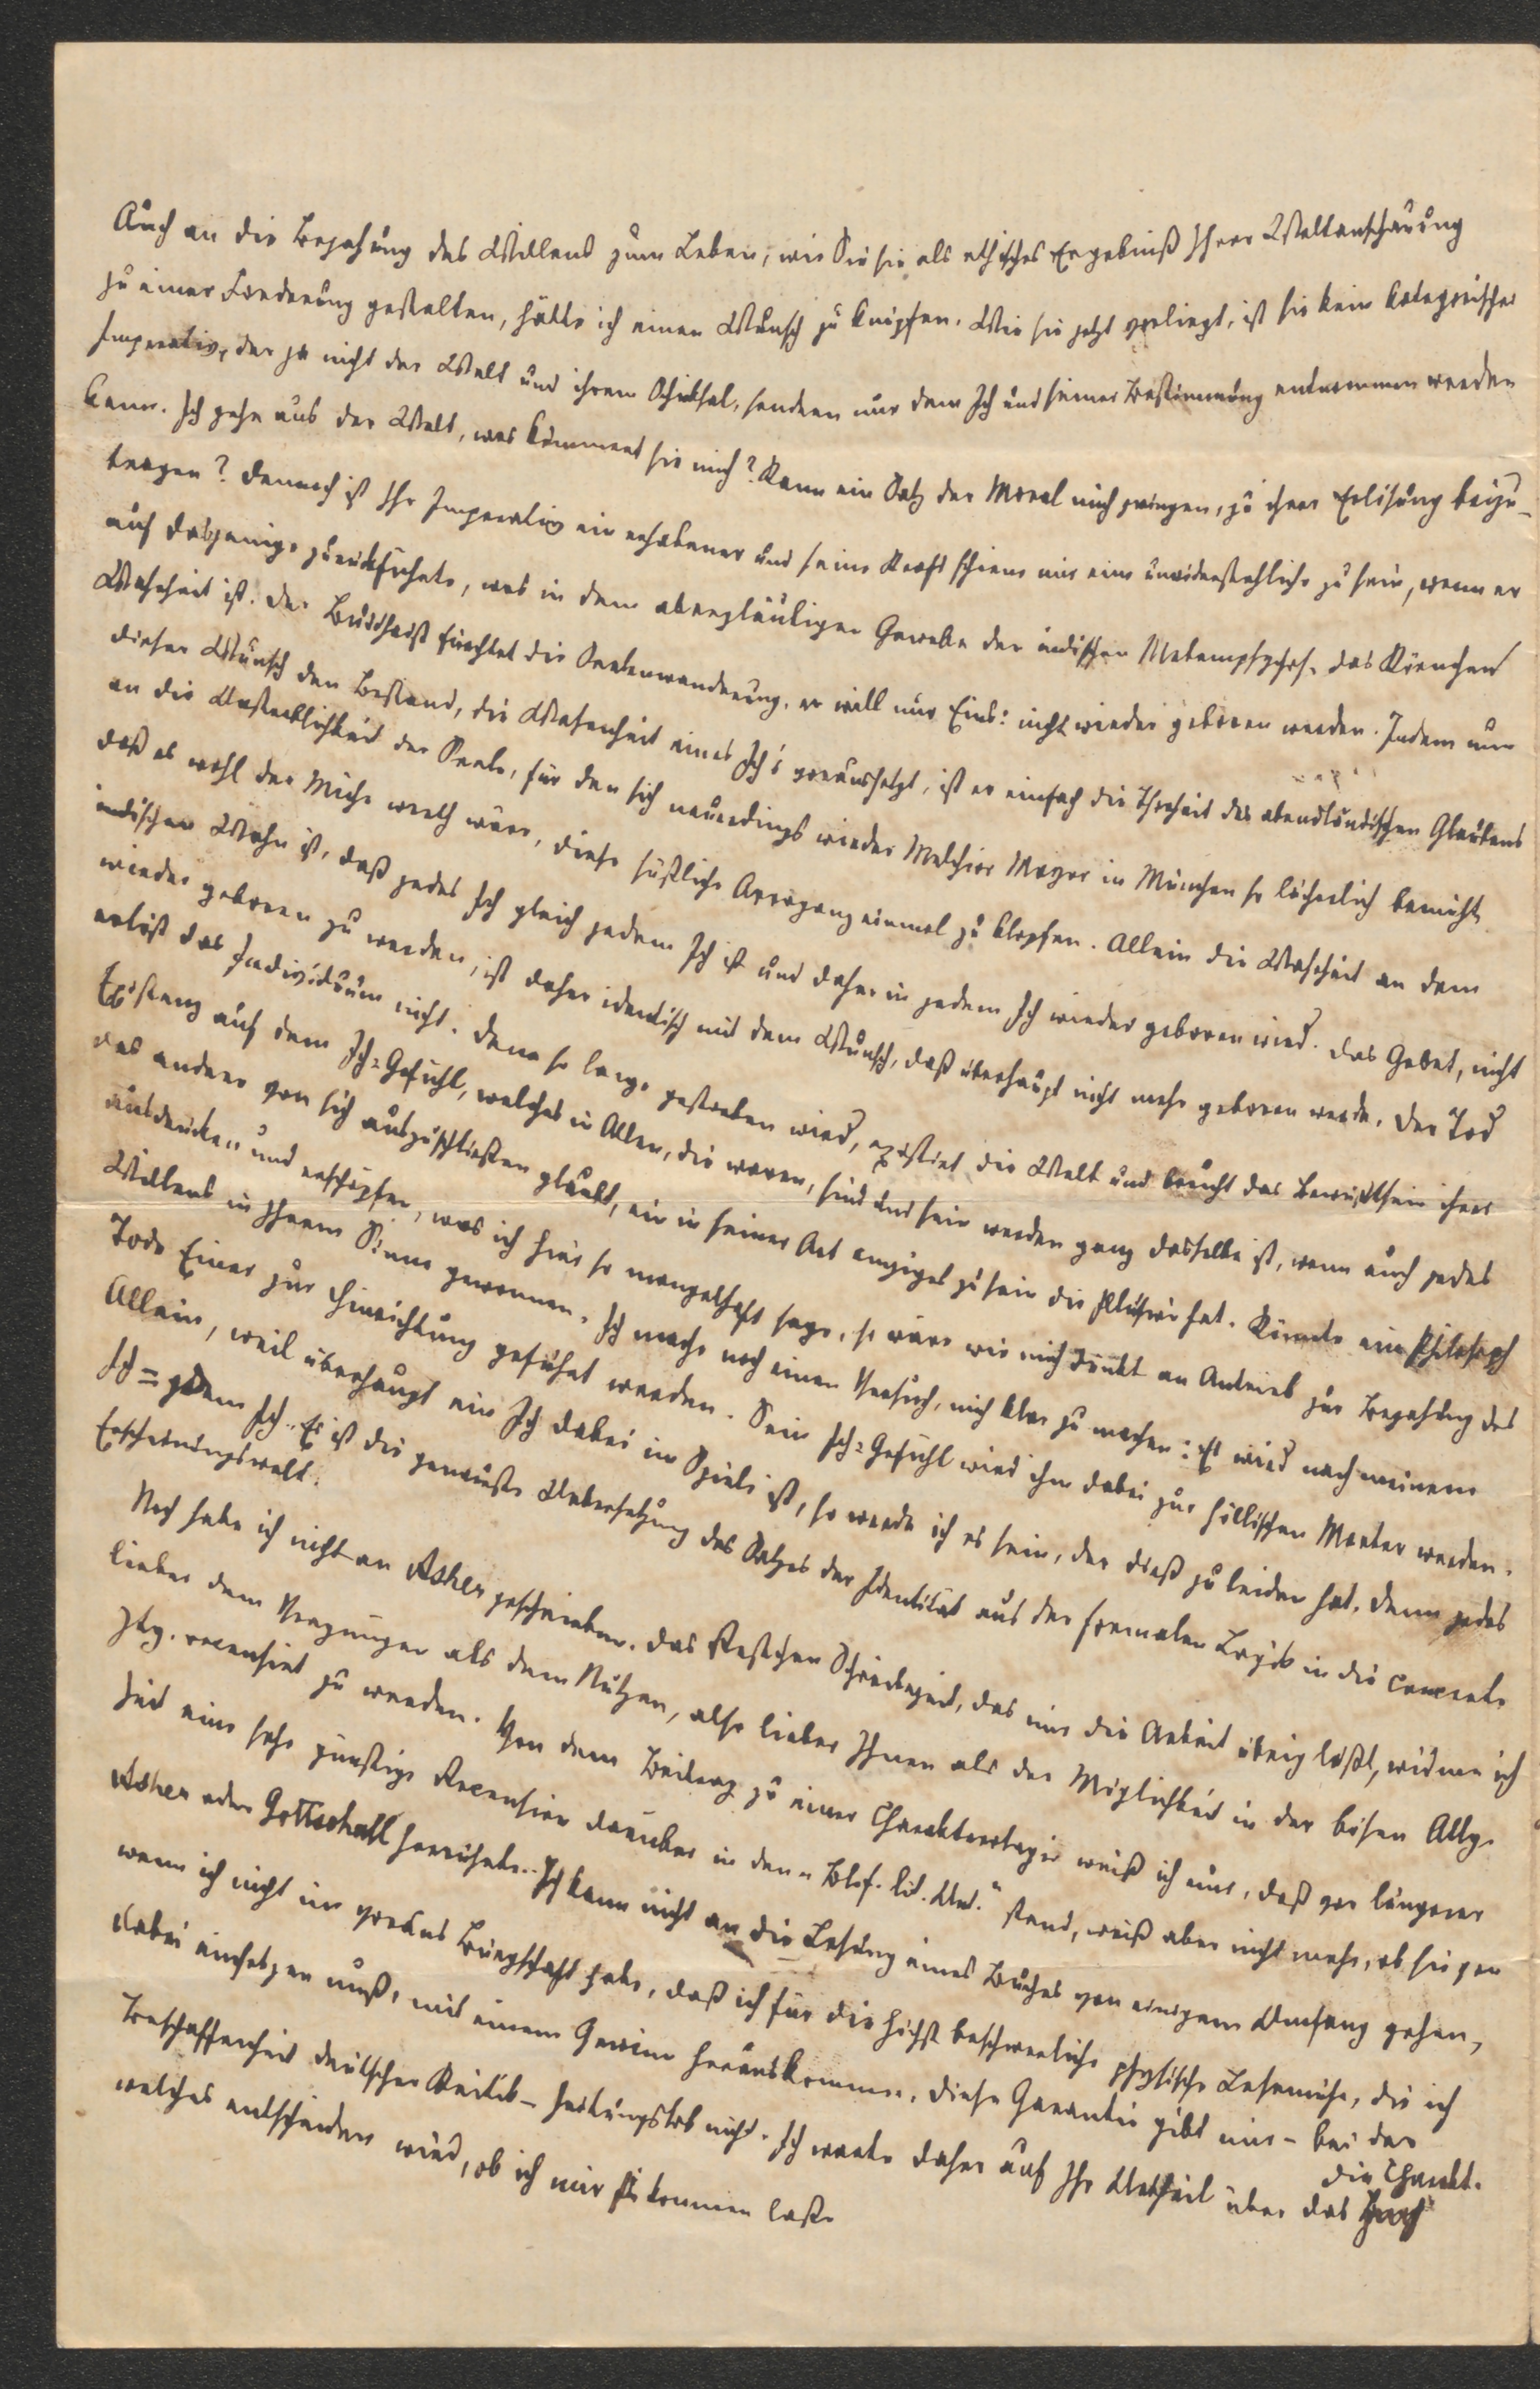 Auch an die Bejahung des Willens zum Leben, wie Sie sie als ethisches Ergebniß Ihrer Weltanschauung
zu einer Forderung gestalten, hätte ich einen Wunsch zu knüpfen. Wie sie jetzt vorliegt, ist sie kein kategorischer
Imperativ, der ja nicht der Welt und ihrem Schicksal, sondern nur dem Ich und seiner Bestimmung entnommen werden
kann. Ich gehe aus der Welt, was kümmert sie mich? Kann ein Satz der Moral mich zwingen, zu ihrer Erlösung beizu-
tragen? Dennoch ist Ihr Imperativ ein erhabener und seine Kraft schiene mir eine unwiderstehliche zu sein, wenn er
auf dasjenige zurückführte, was in dem abergläubigen Gewebe der indischen Metempsychose das Körnchen
Wahrheit ist. Der Buddhist fürchtet die Seelenwanderung, er will nur Eins: nicht wieder geboren werden. Indem nun
dieser Wunsch den Bestand, die Wesenheit eines Ich's voraussetzt, ist er einfach die Thorheit des abendländischen Glaubens
an die Unsterblichkeit der Seele, für den sich neuerdings wieder Melchior Meyer in München so lächerlich bemüht,
daß es wohl der Mühe werth wäre, diese süßliche Arroganz einmal zu klopfen. Allein die Wahrheit an dem
indischen Wahn ist, daß jedes Ich gleich jedem Ich ist und daher in jedem Ich wieder geboren wird. Das Gebet, nicht
wieder geboren zu werden, ist daher identisch mit dem Wunsch, daß überhaupt nicht mehr geboren werde. Der Tod
erlöst das Individuum nicht. Denn so lange gestorben wird, existirt die Welt und beruht das Bewußtsein ihrer
Existenz auf dem Ich-Gefühl, welches in Allen, die waren, sind und sein werden ganz dasselbe ist, wenn auch jedes
das andere von sich auszuschließen glaubt, ein in seiner Art einziges zu sein die Illusion hat. Könnte ein Philosoph
ausdrücken und erschöpfen, was ich hier so mangelhaft sage, so wäre wie mich dünkt ein Antrieb zur Bejahung des
Willens in Ihrem Sinne gewonnen. Ich mache noch einen Versuch, mich klar zu machen: Es wird nach meinem
Tode Einer zur Hinrichtung geführt werden. Sein Ich-Gefühl wird ihm dabei zur höllischen Marter werden.
Allein, weil überhaupt ein Ich dabei im Spiele ist, so werde ich es sein, der dieß zu leiden hat. Denn jedes
Ich = jedem Ich. Es ist die genaueste Uebersetzung des Satzes der Identität aus der formalen Logik in die concrete
Erscheinungswelt.
Noch habe ich nicht an Asher geschrieben. Das Restchen Schreibzeit, das mir die Arbeit übrig läßt, widme ich
lieber dem Vergnügen als dem Nutzen, also lieber Ihnen als der Möglichkeit in der bösen Allg.
Ztg. recensirt zu werden. Von dem Beitrag zu einer Charakterologie weiß ich nur, daß vor längerer
Zeit eine sehr günstige Recension darüber in den „Bl. f. lit. Unt." stand, weiß aber nicht mehr, ob sie von
Asher oder Gottschall herrührte. Ich kann nicht an die Lesung eines Buches von einigem Umfang gehen,
wenn ich nicht im voraus Bürgschaft habe, daß ich für die höchst beschwerliche physische Lesemühe, die ich
dabei einsetzen muß, mit einem Gewinn herauskomme. Diese Garantie gibt mir – bei der
Beschaffenheit deutscher Kritik – Zeitungslob nicht. Ich warte daher auf Ihr Urtheil über das
die Charakt.
welches entscheiden wird, ob ich mir sie kommen lasse